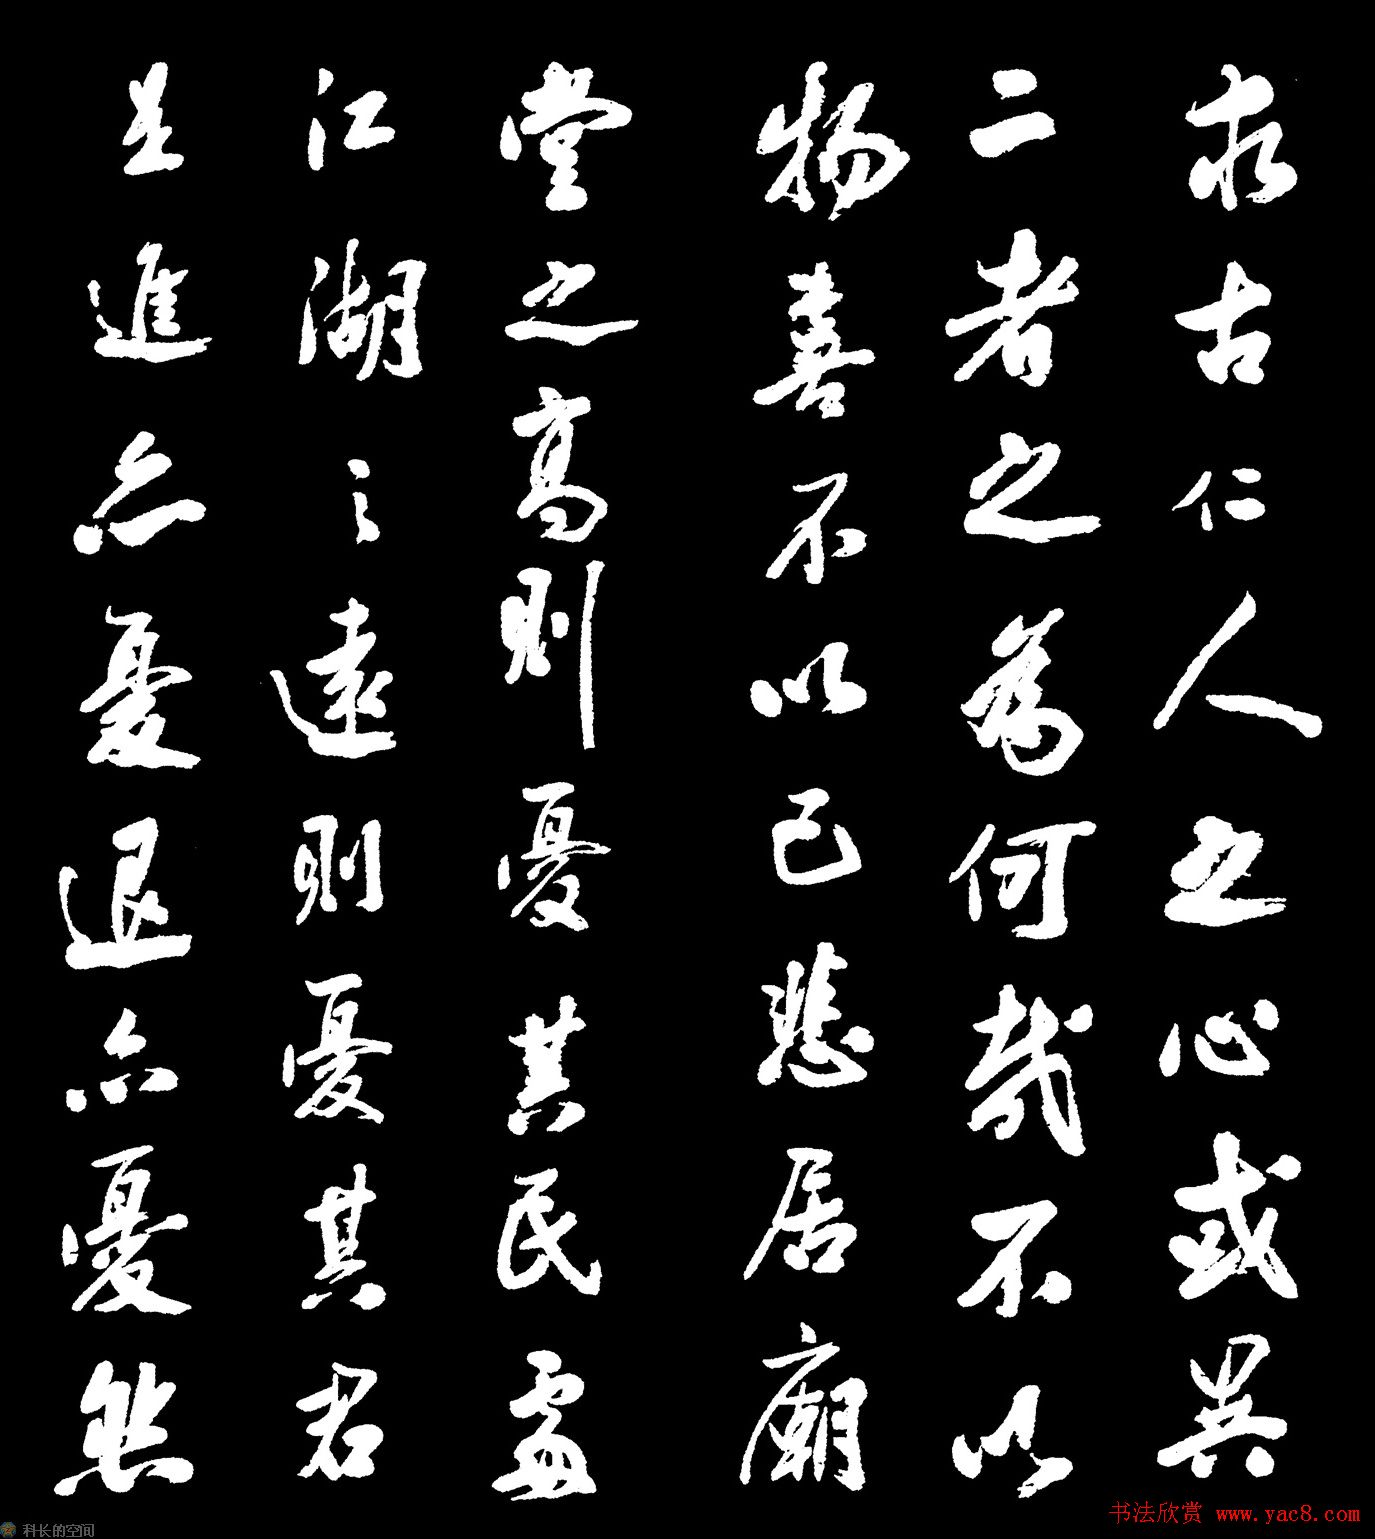 求古仁人之心或異
二者之為何哉不以
物喜不以己悲居廟
堂之高則憂其民處
江湖之遠則憂其君
是進亦憂退亦憂然
书法欣赏 www.yac8.com
科长的空间